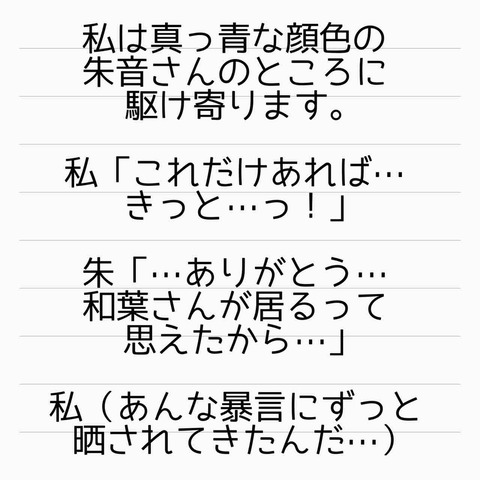 私は真っ青な顔色の
朱音さんのところに
駆け寄ります。
私「これだけあれば…
きっと…っ！」
朱「…ありがとう…
和葉さんが居るって
思えたから…」
私（あんな暴言にずっと
晒されてきたんだ…）